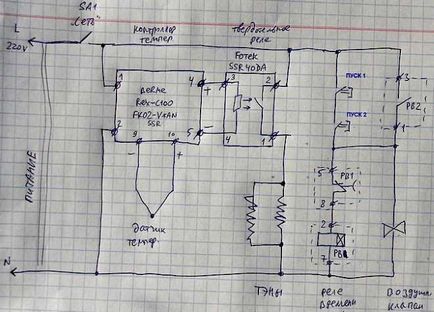 SA1
"Сеть"
L
220V
контролер
темпер
твердотельное
реле
Fotek
SSR 40DA
1
4
+
3
2
3
BERME
REX-C100
FK02-V*AN
SSR
ПУСК1
РВ2
ПУСК2
1
2
5
-
4
1
9
10
-
+
5
РВ1
8
Датчик
темпер.
ПИТАНИЕ
2
РВ1
7
N
ТЭНЫ
реле
времени
Воздушн
клапан